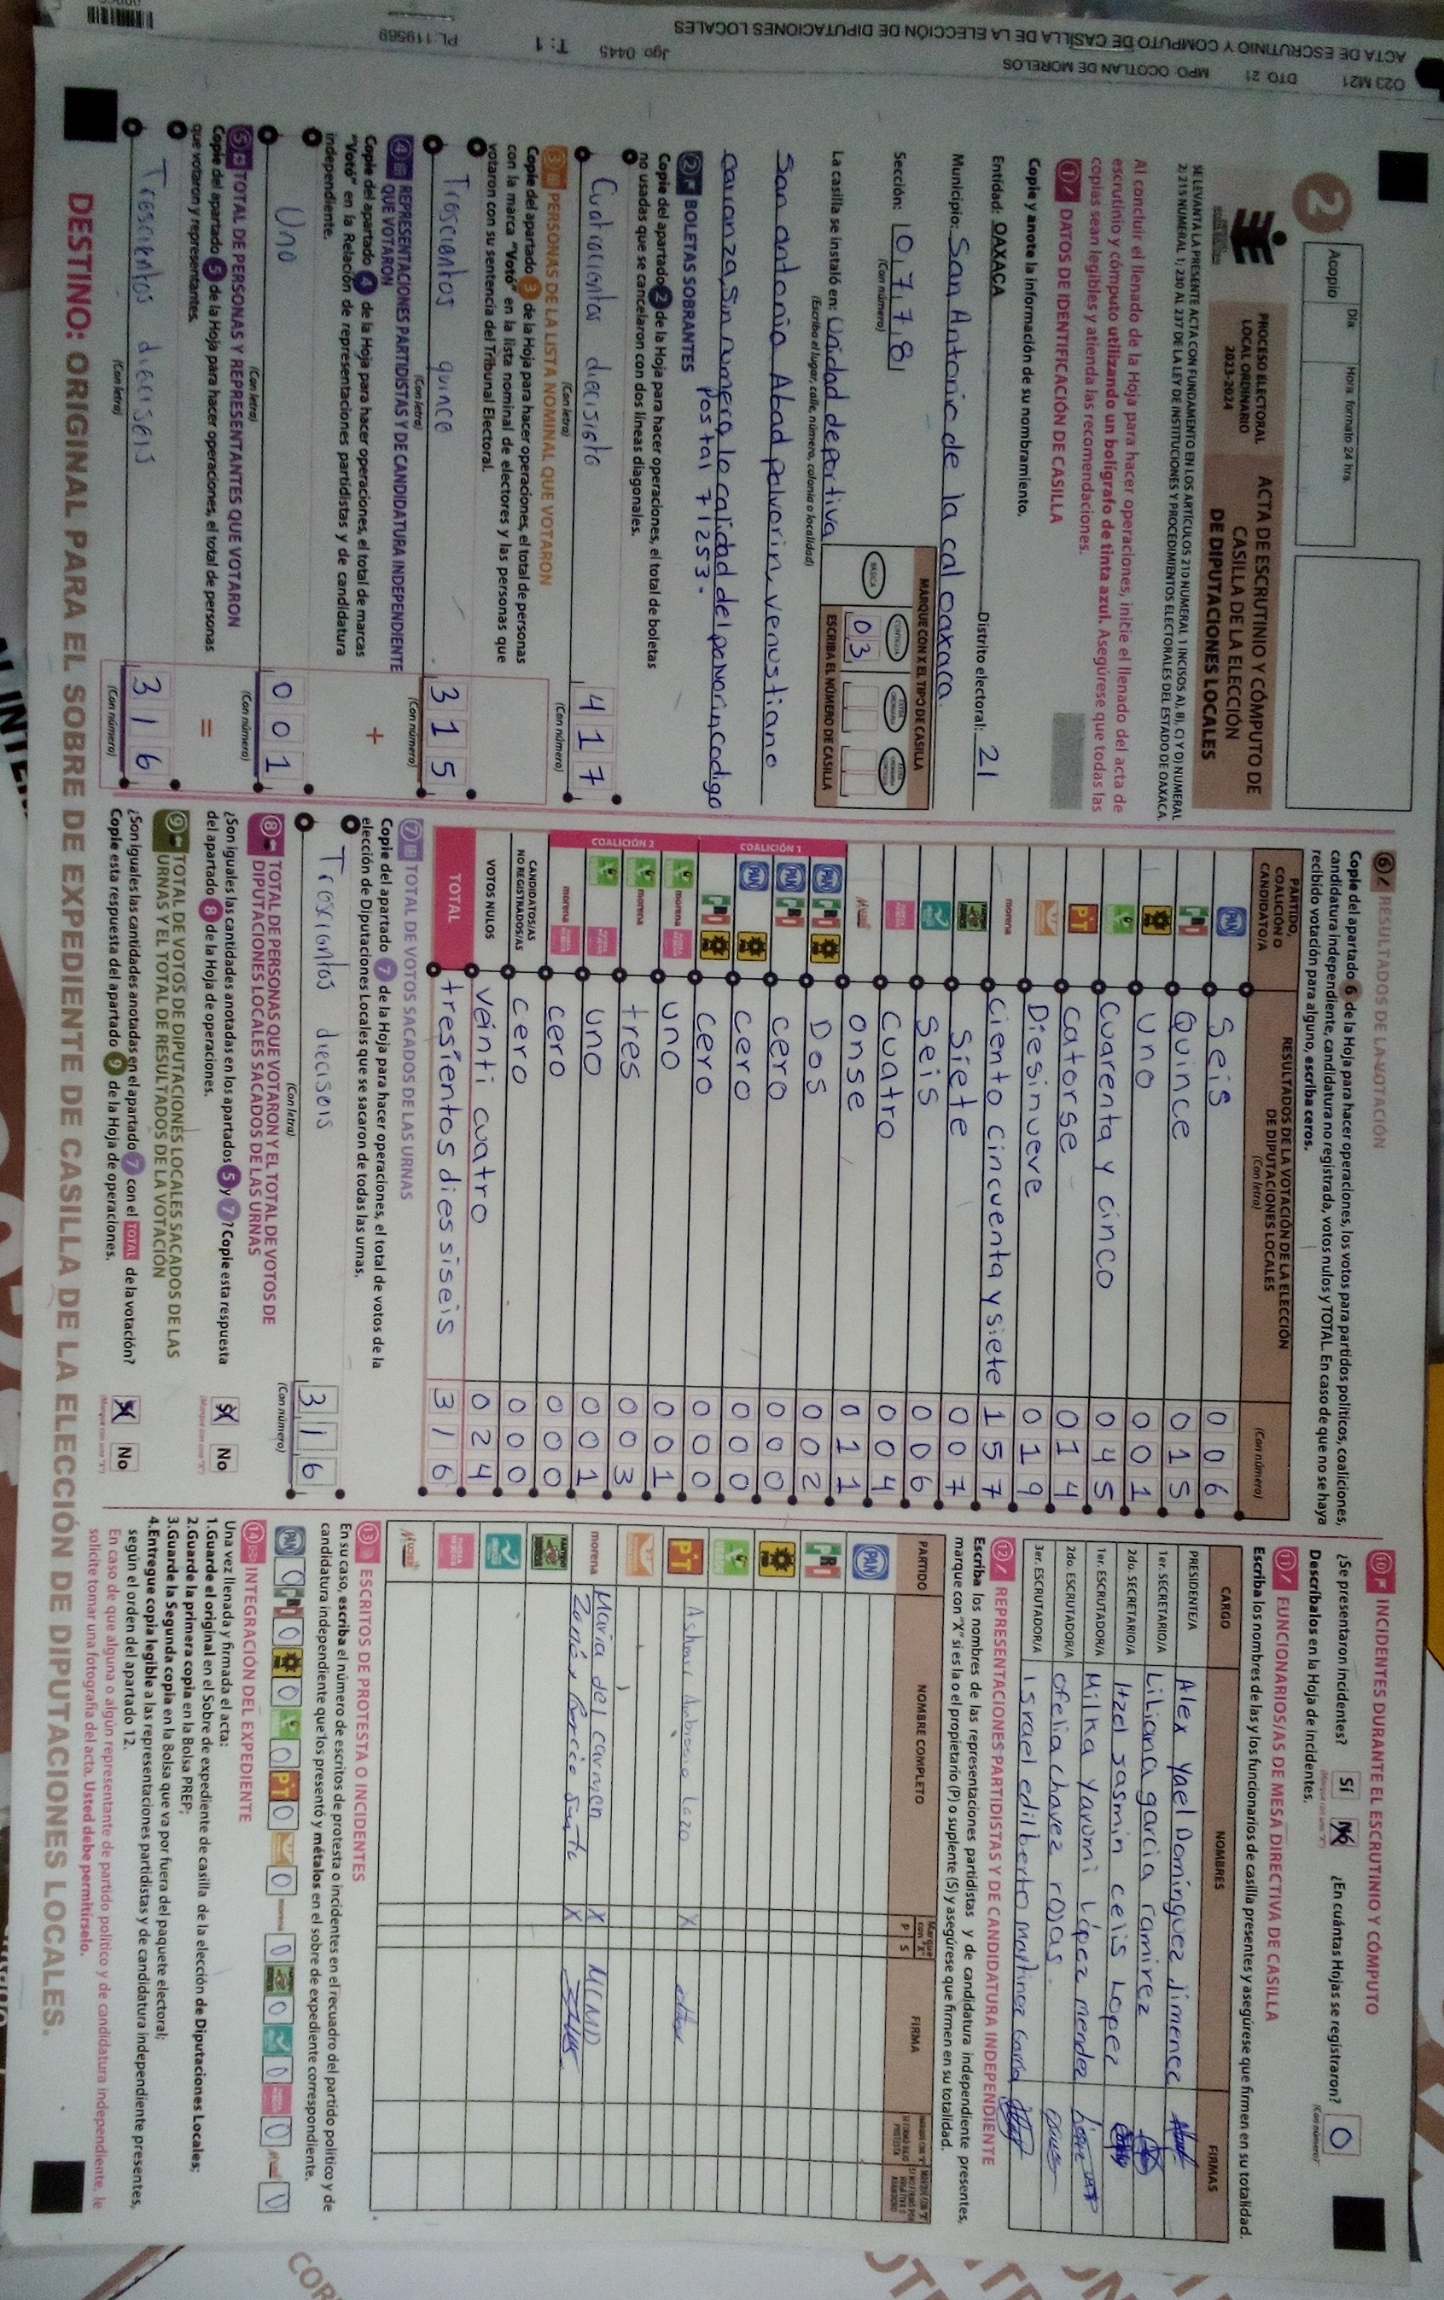 023 M21 DTO 21 MPO OCOTLAN DE MORELOS
ACTA DE ESCRUTINIO Y COMPUTO DE CASILLA DE LA ELECCIÓN DE DIPUTACIONES LOCALES
Jgo 0445 T: 1 PL. 119569
2
Acopio
Día
Hora formato 24 hrs.
PROCESO ELECTORAL
LOCAL ORDINARIO
2023-2024
ACTA DE ESCRUTINIO Y CÓMPUTO DE
CASILLA DE LA ELECCIÓN
DE DIPUTACIONES LOCALES
SE LEVANTA LA PRESENTE ACTA CON FUNDAMENTO EN LOS ARTÍCULOS 210 NUMERAL 1 INCISOS A), B), C) Y D) NUMERAL
2; 215 NUMERAL 1; 230 AL 237 DE LA LEY DE INSTITUCIONES Y PROCEDIMIENTOS ELECTORALES DEL ESTADO DE OAXACA.
Al concluir el llenado de la Hoja para hacer operaciones, inicie el llenado del acta de
escrutinio y cómputo utilizando un bolígrafo de tinta azul. Asegúrese que todas las
copias sean legibles y atienda las recomendaciones.
1 DATOS DE IDENTIFICACIÓN DE CASILLA
Copie y anote la información de su nombramiento.
Entidad: OAXACA Distrito electoral: 21
Municipio: San Antonio de la cal oaxaca
Sección: 0 7 7 8
(Con número)
MARQUE CON X EL TIPO DE CASILLA
BÁSICA
ESCRIBA EL NÚMERO DE CASILLA
0 3
La casilla se instaló en: Unidad deportiva
(Escriba el lugar, calle, número, colonia o localidad)
San antonio Abad polvorin, venustiano
carranza, sin numero, localidad del polvorin codigo
Postal 71253.
2 BOLETAS SOBRANTES
Copie del apartado 2 de la Hoja para hacer operaciones, el total de boletas
no usadas que se cancelaron con dos líneas diagonales.
Cuatrocientos diecisiete 4 1 7
(Con letra) (Con número)
3 PERSONAS DE LA LISTA NOMINAL QUE VOTARON
Copie del apartado 3 de la Hoja para hacer operaciones, el total de personas
con la marca "Votó" en la lista nominal de electores y las personas que
votaron con su sentencia del Tribunal Electoral.
Trescientos quince 3 1 5
(Con letra) (Con número)
4 REPRESENTACIONES PARTIDISTAS Y DE CANDIDATURA INDEPENDIENTE
QUE VOTARON
+
Copie del apartado 4 de la Hoja para hacer operaciones, el total de marcas
"Votó" en la Relación de representaciones partidistas y de candidatura
independiente.
Uno 0 0 1
(Con letra) (Con número)
5 TOTAL DE PERSONAS Y REPRESENTANTES QUE VOTARON
=
Copie del apartado 5 de la Hoja para hacer operaciones, el total de personas
que votaron y representantes.
Trescientos dieciseis 3 1 6
(Con letra) (Con número)
6 RESULTADOS DE LA VOTACIÓN
Copie del apartado 6 de la Hoja para hacer operaciones, los votos para partidos políticos, coaliciones,
candidatura independiente, candidatura no registrada, votos nulos y TOTAL. En caso de que no se haya
recibido votación para alguno, escriba ceros.
PARTIDO,
COALICIÓN O
CANDIDATO/A
RESULTADOS DE LA VOTACIÓN DE LA ELECCIÓN
DE DIPUTACIONES LOCALES
(Con letra)
(Con número)
PAN Seis 0 0 6
PRI Quince 0 1 5
Uno 0 0 1
Cuarenta y cinco 0 4 5
PT Catorse 0 1 4
Diesinueve 0 1 9
morena Ciento cincuenta y siete 1 5 7
Siete 0 0 7
Seis 0 0 6
Cuatro 0 0 4
onse 0 1 1
COALICIÓN 1
PAN PRI Dos 0 0 2
PAN PRI cero 0 0 0
PAN cero 0 0 0
PRI cero 0 0 0
COALICIÓN 2
morena uno 0 0 1
morena tres 0 0 3
uno 0 0 1
morena cero 0 0 0
CANDIDATOS/AS
NO REGISTRADOS/AS
cero 0 0 0
VOTOS NULOS veinti cuatro 0 2 4
TOTAL tresientos diessiseis 3 1 6
7 TOTAL DE VOTOS SACADOS DE LAS URNAS
Copie del apartado 7 de la Hoja para hacer operaciones, el total de votos de la
elección de Diputaciones Locales que se sacaron de todas las urnas.
Trescientos dieciseis 3 1 6
(Con letra) (Con número)
8 TOTAL DE PERSONAS QUE VOTARON Y EL TOTAL DE VOTOS DE
DIPUTACIONES LOCALES SACADOS DE LAS URNAS
¿Son iguales las cantidades anotadas en los apartados 5 y 7? Copie esta respuesta
del apartado 8 de la Hoja de operaciones.
Sí No
9 TOTAL DE VOTOS DE DIPUTACIONES LOCALES SACADOS DE LAS
URNAS Y EL TOTAL DE RESULTADOS DE LA VOTACIÓN
¿Son iguales las cantidades anotadas en el apartado 7 con el TOTAL de la votación?
Copie esta respuesta del apartado 9 de la Hoja de operaciones.
Sí No
10 INCIDENTES DURANTE EL ESCRUTINIO Y CÓMPUTO
¿Se presentaron incidentes? Sí No ¿En cuántas Hojas se registraron? 0
Descríbalos en la Hoja de incidentes.
11 FUNCIONARIOS/AS DE MESA DIRECTIVA DE CASILLA
Escriba los nombres de las y los funcionarios de casilla presentes y asegúrese que firmen en su totalidad.
CARGO NOMBRES FIRMAS
PRESIDENTE/A Alex Yael Domínguez Jimenez
1er. SECRETARIO/A Liliana garcia ramirez
2do. SECRETARIO/A Itzel Jasmin celis Lopez
1er. ESCRUTADOR/A Milka Yarumi López mendez
2do. ESCRUTADOR/A ofelia chavez rojas.
3er. ESCRUTADOR/A israel edilberto martinez García
12 REPRESENTACIONES PARTIDISTAS Y DE CANDIDATURA INDEPENDIENTE
Escriba los nombres de las representaciones partidistas y de candidatura independiente presentes,
marque con "X" si es la o el propietario (P) o suplente (S) y asegúrese que firmen en su totalidad.
PARTIDO NOMBRE COMPLETO P S FIRMA
PAN
PRI
PT Ambrosio Lazo X
morena Maria del carmen X MCMD
X
13 ESCRITOS DE PROTESTA O INCIDENTES
En su caso, escriba el número de escritos de protesta o incidentes en el recuadro del partido político y de
candidatura independiente que los presentó y métalos en el sobre de expediente correspondiente.
PAN 0 PRI 0 0 0 PT 0 0 morena 0 0 0 0 0
14 INTEGRACIÓN DEL EXPEDIENTE
Una vez llenada y firmada el acta:
1.Guarde el original en el Sobre de expediente de casilla de la elección de Diputaciones Locales;
2.Guarde la primera copia en la Bolsa PREP;
3.Guarde la Segunda copia en la Bolsa que va por fuera del paquete electoral;
4.Entregue copia legible a las representaciones partidistas y de candidatura independiente presentes,
según el orden del apartado 12.
En caso de que alguna o algún representante de partido político y de candidatura independiente, le
solicite tomar una fotografía del acta. Usted debe permitírselo.
DESTINO: ORIGINAL PARA EL SOBRE DE EXPEDIENTE DE CASILLA DE LA ELECCIÓN DE DIPUTACIONES LOCALES.